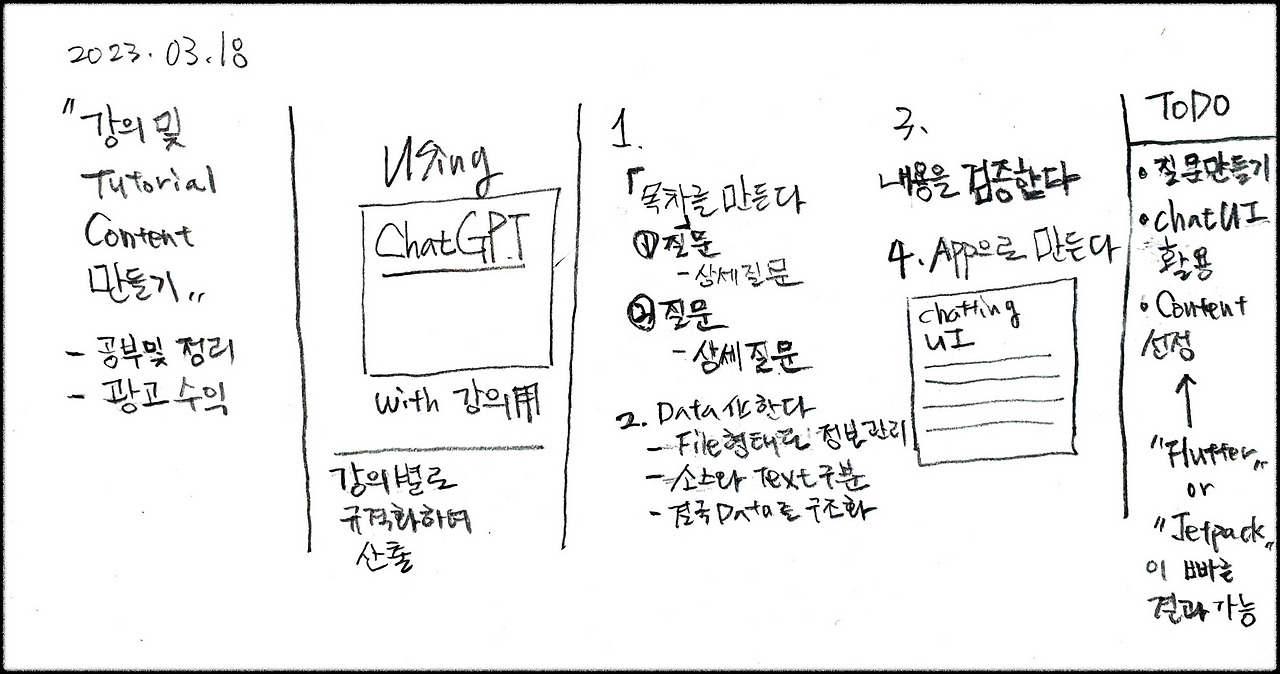 2023.03.18
"강의 및
Tutorial
Content
만들기"
- 공부및 정리
- 광고 수익
Using
ChatGPT
with 강의用
강의별로
규격화하여
산출
1.
「목차를 만든다
① 질문
- 상세질문
② 질문
- 상세질문
2. Data化한다
- File형태로 정보관리
- 소스와 Text 구분
- 결국 Data로 구조화
3.
내용을 검증한다
4. App으로 만든다
chatting
UI
ToDo
• 질문만들기
• chatUI
활용
• Content
선정
↑
"Flutter"
or
"Jetpack"
이 빠른
결과 가능